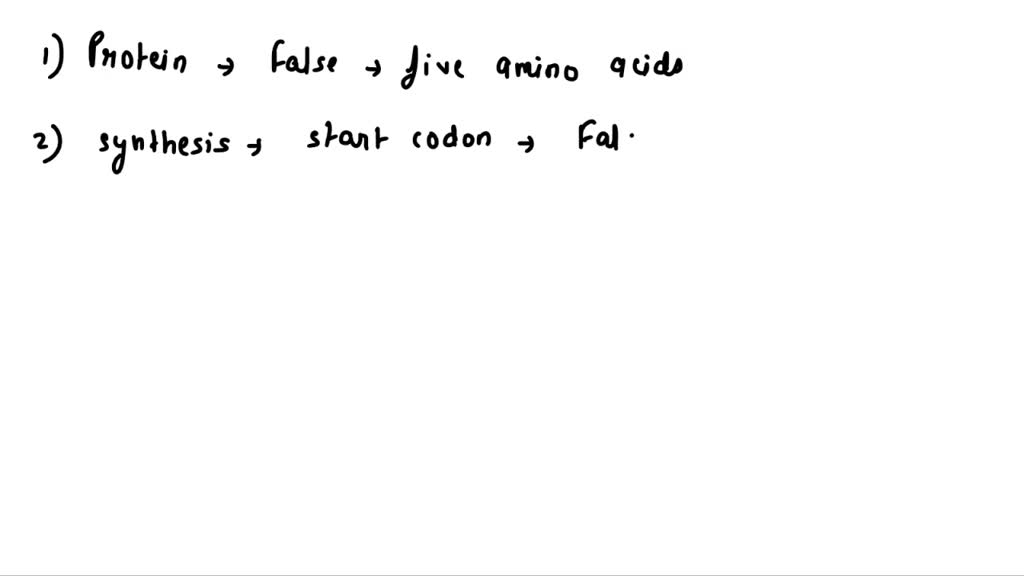 1) Protein → False → five amino acids
2) synthesis → start codon → Fal.